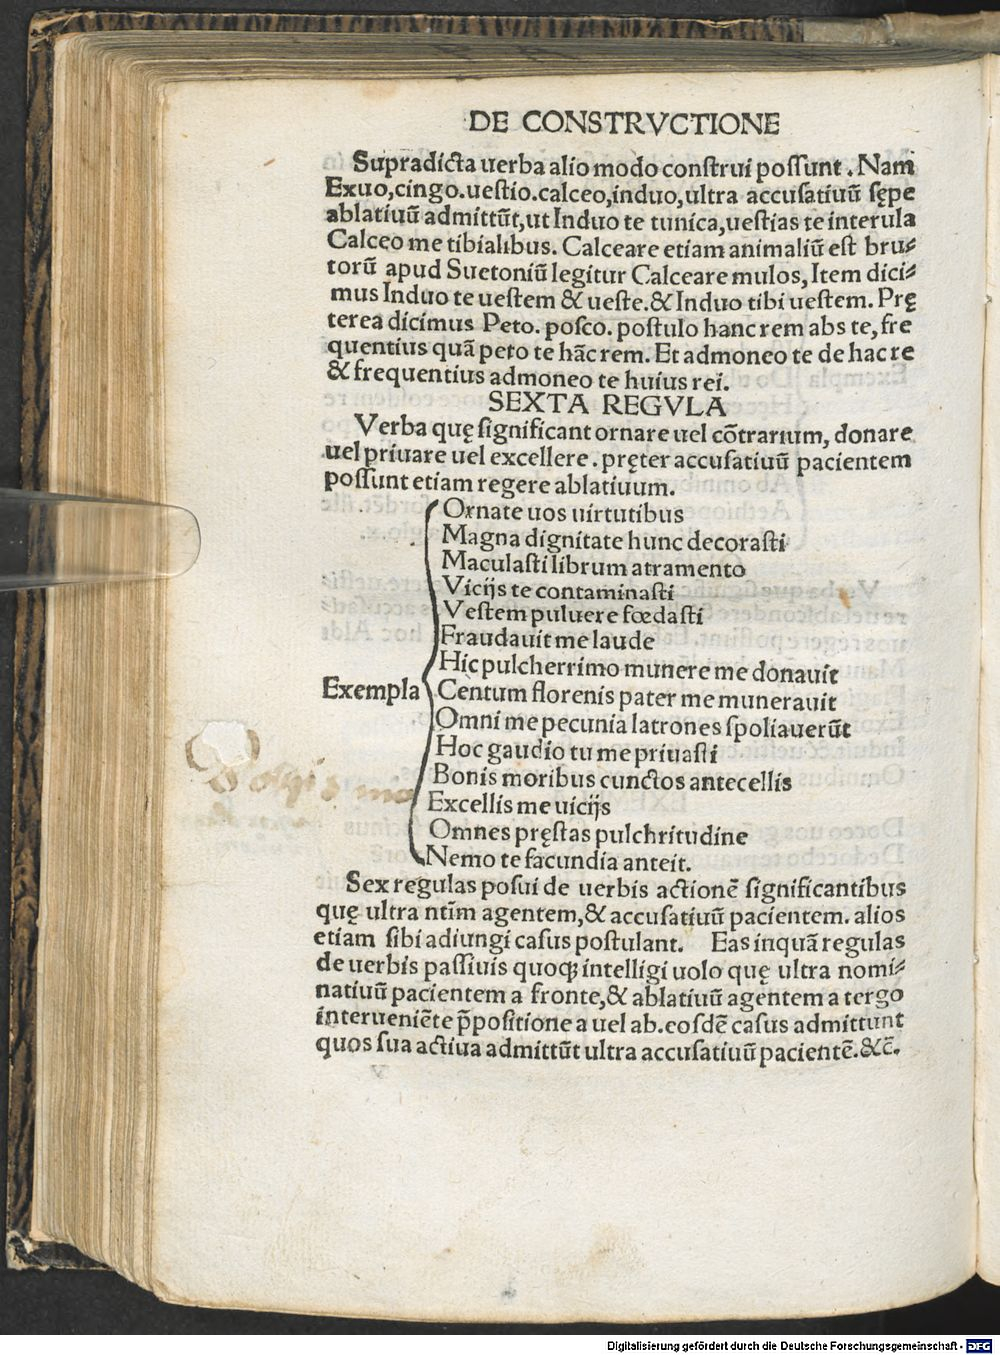 DE CONSTRVCTIONE
Supradicta uerba alio modo construi possunt. Nam
Exuo, cingo. uestio. calceo, induo, ultra accusatiuū sępe
ablatiuū admittūt, ut Induo te tunica, uestias te interula
Calceo me tibialibus. Calceare etiam animaliū est bru⸗
torū apud Suetoniū legitur Calceare mulos, Item dici⸗
mus Induo te uestem & ueste. & Induo tibi uestem. Prę
terea dicimus Peto. posco. postulo hanc rem abs te, fre
quentius quā peto te hāc rem. Et admoneo te de hac re
& frequentius admoneo te huius rei.
SEXTA REGVLA
Verba quę significant ornare uel cōtrarium, donare
uel priuare uel excellere. pręter accusatiuū pacientem
possunt etiam regere ablatiuum.
Ornate uos uirtutibus
Magna dignitate hunc decorasti
Maculasti librum atramento
Vicijs te contaminasti
Vestem puluere fœdasti
Fraudauit me laude
Hic pulcherrimo munere me donauit
Exempla Centum florenis pater me munerauit
Omni me pecunia latrones spoliauerūt
Hoc gaudio tu me priuasti
Bonis moribus cunctos antecellis
Excellis me uicijs
Omnes pręstas pulchritudine
Nemo te facundia anteit.
Sex regulas posui de uerbis actionē significantibus
quę ultra ntīm agentem, & accusatiuū pacientem. alios
etiam sibi adiungi casus postulant. Eas inquā regulas
de uerbis passiuis quoqꝫ intelligi uolo quę ultra nomi⸗
natiuū pacientem a fronte, & ablatiuū agentem a tergo
interueniēte p̄positione a uel ab. eosdē casus admittunt
quos sua actiua admittūt ultra accusatiuū pacientē. &c̄.
Digitalisierung gefördert durch die Deutsche Forschungsgemeinschaft - DFG